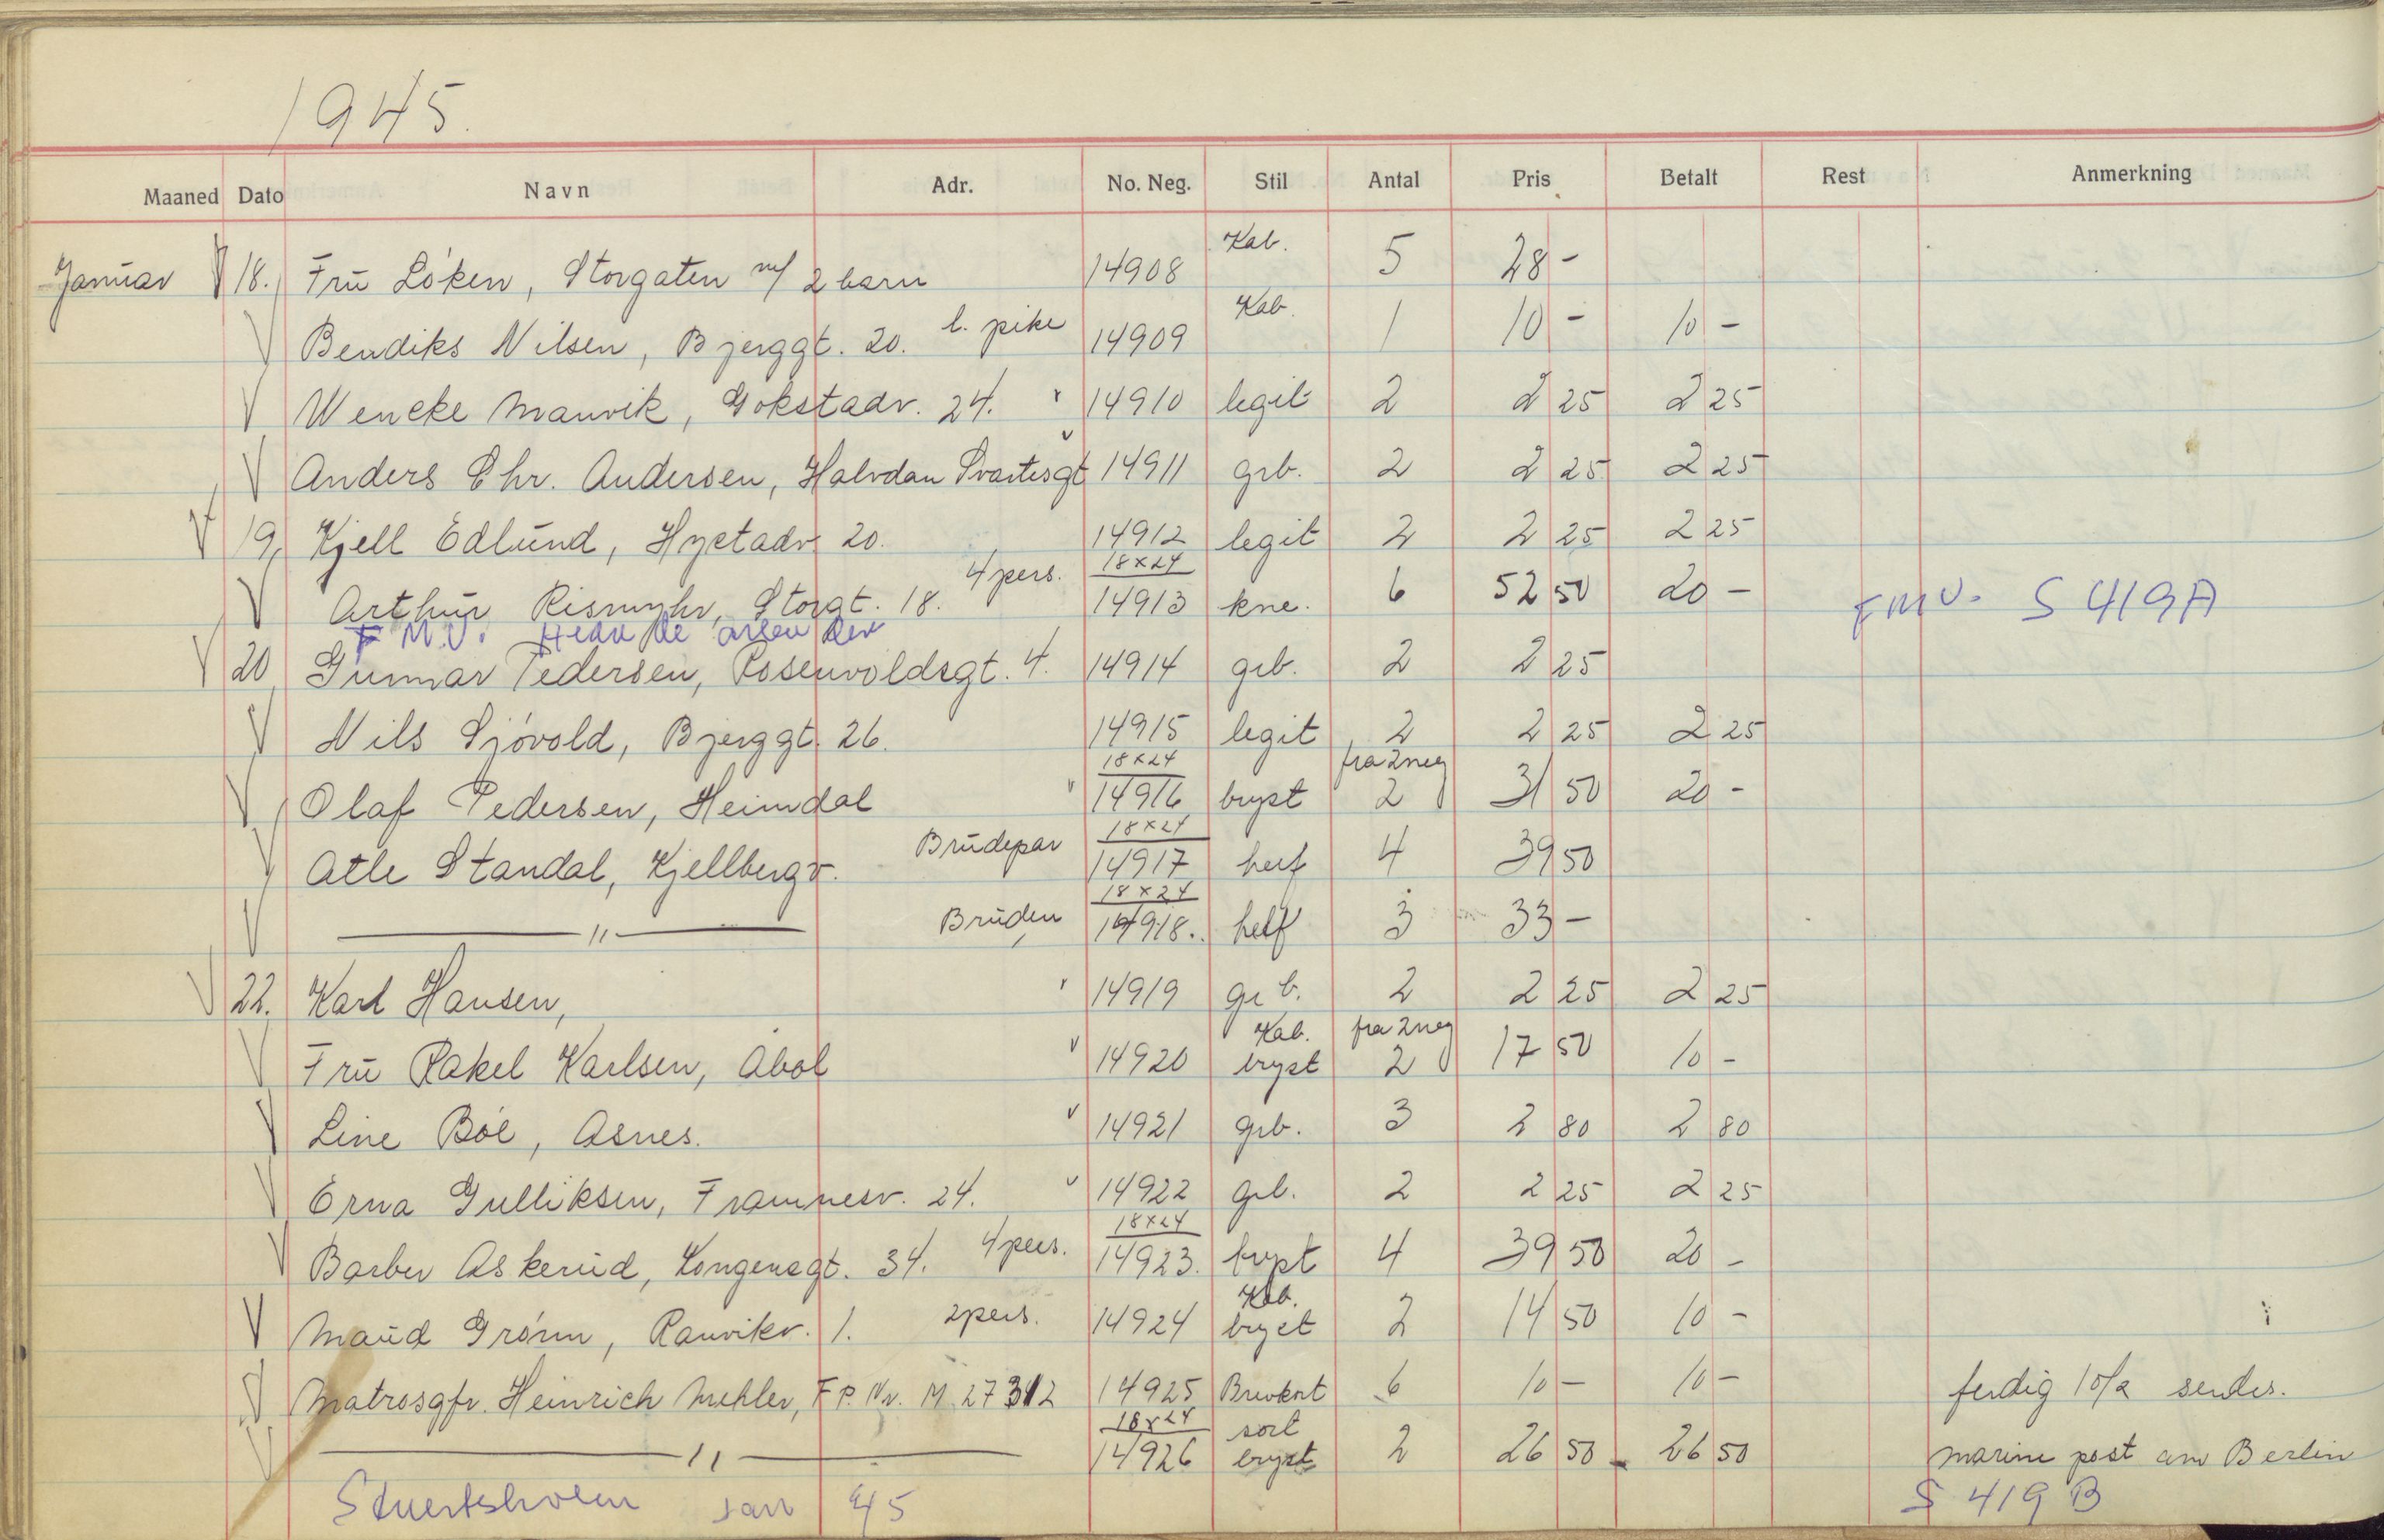 1945.
Maaned Dato Navn Adr. No. Neg. Stil Antal Pris Betalt Rest Anmerkning
Januar V 18. Frū Löken, Storgaten m/ 2 barn 14908 Kab. 5 28 -
V Bendiks Nilsen, Bjerggt. 20. l. pike 14909 Kab. 1 10 - 10 -
V Wencke Manvik, Gokstadv. 24. " 14910 legit 2 2 25 2 25
V Anders Chr. Andersen, Halvdan Svartesgt 14911 grb. 2 2 25 2 25
V 19, Kjell Edlūnd, Hystadv. 20. 14912 legit 2 2 25 2 25
V Arthūr Rismyhr, Storgt. 18. 4 pers. 18x24 14913 kne. 6 52 50 20 - FMU. S 419A
F M.U.
V 20 Gūnnar Pedersen, Rosenvoldsgt. 4. 14914 grb. 2 2 25
V Nils Sjövold, Bjerggt. 26. 14915 legit 2 2 25 2 25
V Olaf Pedersen, Heimdal " 18x24 14916 bryst fra 2 neg 2 31 50 20 -
V Atle Standal, Kjellbergv. Brūdepar 18x24 14917 helf 4 39 50
V — " — Brūden 18x24 14918. helf 3 33 -
V 22. Karl Hansen, " 14919 grb. 2 2 25 2 25
V Frū Rakel Karlsen, Åbol " 14920 Kab. bryst fra 2 neg 2 17 50 10 -
V Line Böe, Åsnes. " 14921 grb. 3 2 80 2 80
V Erna Gulliksen, Framnesv. 24. " 14922 grb. 2 2 25 2 25
V Barber Askerūd, Kongensgt. 34. 4 pers. 18x24 14923. bryst 4 39 50 20 -
V Maūd Grönn, Ranvikv. 1. 2 pers. 14924 Kab. bryst 2 14 50 10 -
V Matrosgfr. Heinrich Mehler, F.P. Nr. M 27312 14925 Brevkort 6 10 - 10 - ferdig 10/2 sendes.
V — " — 18x24 14926 sort bryst 2 26 50 26 50 marine post am Berlin
jan 45 S 419 B